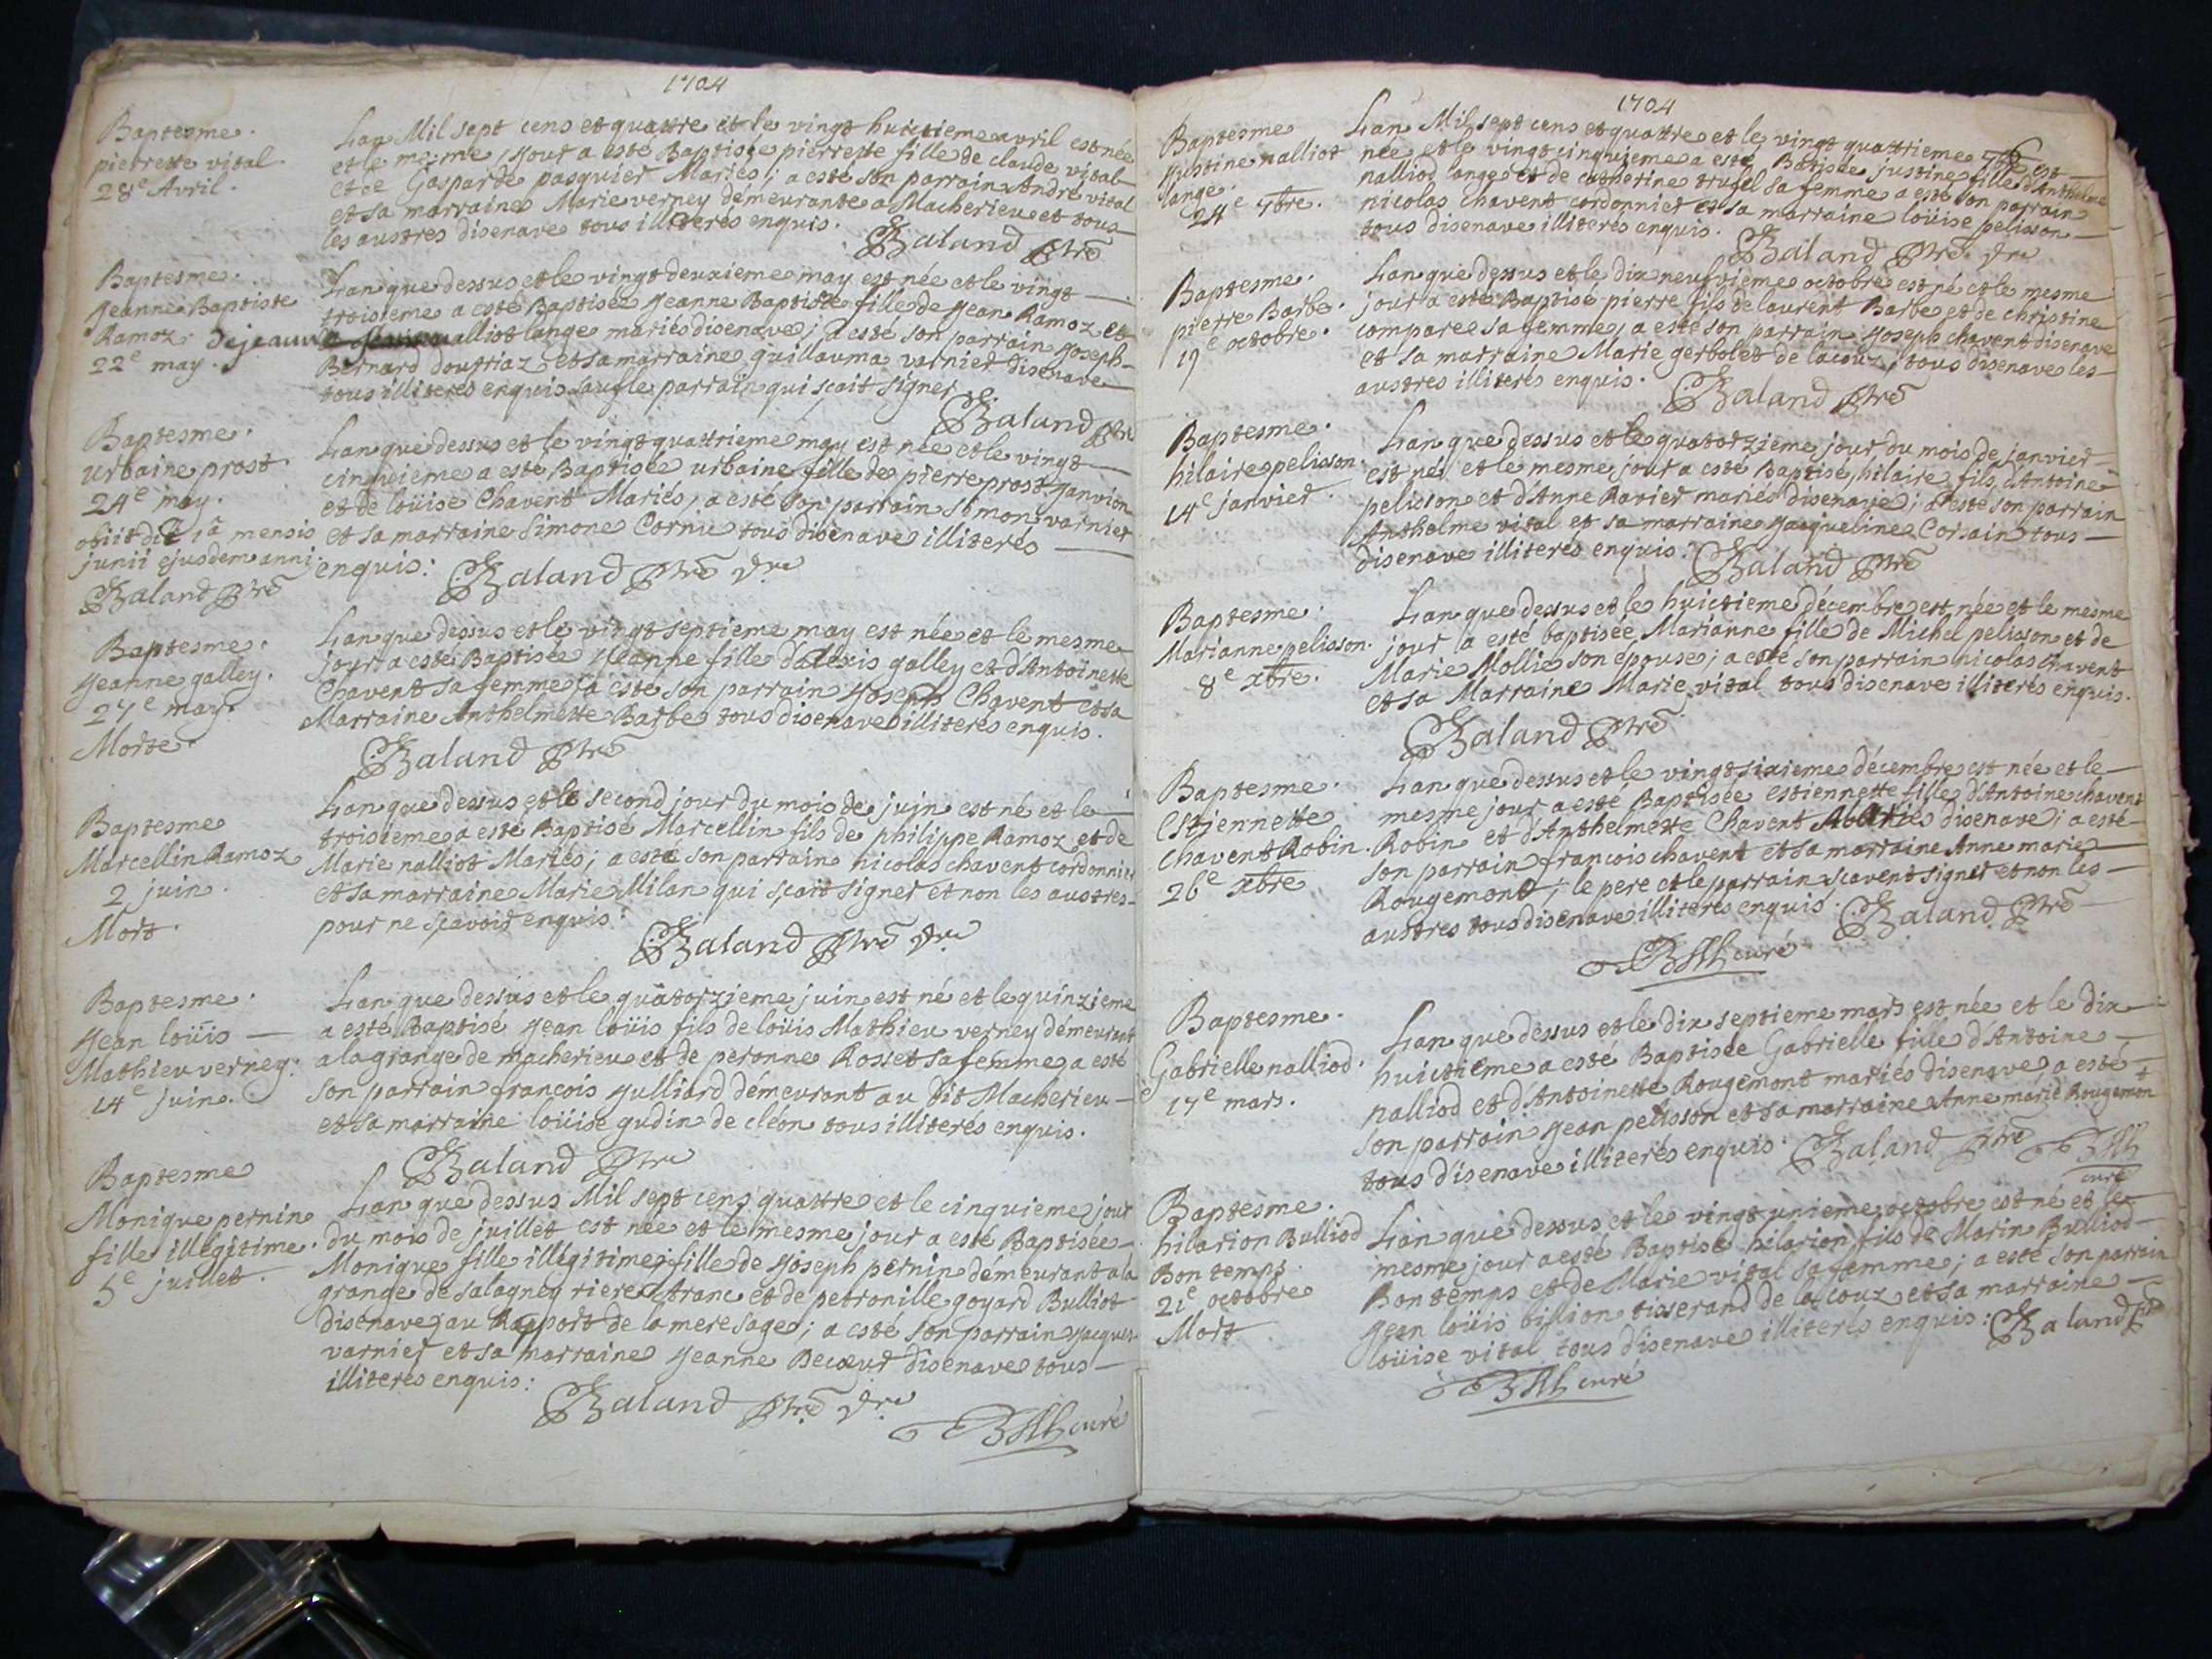 1704
Baptesme.
pierrette vital.
28e Avril.
Lan Mil sept cens et quattre et le vingt huictieme avril est née
et le mesme jour a esté Baptisée pierrette fille de claude vital
et de Gasparde pasquier Mariés; a esté son parrain André vital
et sa marraine Marie verney démeurante a Macherieu et tous
les austres disenave tous illiterés enquis. Baland ptre
Baptesme.
Jeanne Baptiste
Ramoz.
22e may.
Lan que dessus et le vingt deuxieme may est née et le vingt
troisieme a esté Baptisée Jeanne Baptiste fille de Jean Ramoz et
dejeanne nalliot lange mariés disenave; a esté son parrain Joseph
Bernard doufriaz et sa marraine guillauma varnier disenave
tous illiterés enquis sauf le parrain qui sçait signer
Baland ptre
Baptesme.
urbaine prost.
24e may.
obiit die 1a mensis
junii ejusdem anni.
Baland ptre
Lan que dessus et le vingt quattrieme may est née et le vingt
cinquieme a esté Baptisée urbaine fille de pierre prost janvion
et de loüise Chavent Mariés, a esté son parrain Simon varnier
et sa marraine Simone Cornu tous disenave illiterés
enquis: Baland ptre vre
Baptesme.
Jeanne galley.
27e may.
Morte.
Lan que dessus et le vingt septieme may est née et le mesme
jour a esté Baptisée Jeanne fille d'alexis galley et d'Antoinette
Chavent sa femme; a esté son parrain Joseph Chavent et sa
Marraine Anthelmette Barbe tous disenave illiterés enquis.
Baland ptre
Baptesme
Marcellin Ramoz
2 juin.
Mort.
Lan que dessus et le second jour du mois de juin est né et le
troisieme a esté Baptisé Marcellin fils de philippe Ramoz et de
Marie nalliot Mariés; a esté son parrain nicolas chavent cordonnier
et sa marraine Marie Milan qui sçait signer et non les austres
pour ne sçavoir enquis:
Baland ptre vre
Baptesme.
Jean loüis
Mathieu verney.
14e juin.
Lan que dessus et le quatorzieme juin est né et le quinzieme
a esté Baptisé Jean loüis fils de loüis Mathieu verney démeurant
a la grange de macherieu et de peronne Rosset sa femme, a esté
son parrain françois Julliard démeurant au dit Macherieu
et sa marraine loüise gudin de cléon tous illiterés enquis.
Baland ptre
Baptesme
Monique pernin
fille illégitime.
5e juillet.
Lan que dessus Mil sept cens quattre et le cinquieme jour
du mois de juillet est née et le mesme jour a esté Baptisée
Monique fille illégitime; fille de Joseph pernin démeurant a la
grange de salagney riere Aranc et de petronille goyard Bulliot
disenave; au Rapport de la mere sage; a esté son parrain Jacques
varnier et sa marraine Jeanne Becœur disenave tous
illiterés enquis:
Baland ptre vre
curé
1704
Baptesme
Justine nalliot
lange.
24e 7bre.
Lan Mil sept cens et quattre et le vingt quattrieme 7bre est
née et le vingt cinquieme a esté Batisée justine fille d'Anthelme
nalliod lange et de catherine trufel sa femme a esté son parrain
nicolas chavent cordonnier et sa marraine loüise pelisson
tous disenave illiterés enquis.
Baland ptre vre
Baptesme.
pierre Barbe.
19e octobre.
Lan que dessus et le dix neufvieme octobre est né et le mesme
jour a esté Baptisé pierre fils de laurent Barbe et de christine
comparee sa femme, a esté son parrain Joseph chavent disenave
et sa marraine Marie gerbolet de lacouz; tous disenave les
austres illiterés enquis. Baland ptre
Baptesme.
hilaire pelisson.
14e janvier.
Lan que dessus et le quatorzieme jour du mois de janvier
est né et le mesme jour a esté Baptisé hilaire fils d'Antoine
pelisson et d'Anne Ravier mariés disenave; a esté son parrain
Anthelme vital et sa marraine Jacqueline Corsain tous
disenave illiterés enquis. Baland ptre
Baptesme.
Marianne pelisson.
8e xbre.
Lan que dessus et le huictieme décembre est née et le mesme
jour a esté baptisée Marianne fille de Michel pelisson et de
Marie Mollie son épouse; a esté son parrain nicolas chavent
et sa Marraine Marie vital tous disenave illiterés enquis.
Baland ptre
Baptesme.
Estiennette
chavent Robin.
26e xbre
Lan que dessus et le vingt sixieme décembre est née et le
mesme jour a esté Baptisée estiennette fille d'Antoine chavent
Robin et d'Anthelmette Chavent Mariés disenave; a esté
son parrain françois chavent et sa marraine Anne marie
Rougemont; le pere et le parrain sçavent signer et non les
austres tous disenave illiterés enquis. Baland ptre
curé
Baptesme.
Gabrielle nalliod.
17e mars.
Lan que dessus et le dix septieme mars est née et le dix
huictieme a esté Baptisée Gabrielle fille d'Antoine
nalliod et d'Antoinette Rougemont mariés disenave, a esté
son parrain Jean pelisson et sa marraine Anne marie Rougemon
tous disenave illiterés enquis. Baland ptre
curé
Baptesme.
hilarion Bulliod
Bon temps.
21e octobre
Mort
Lan que dessus et le vingt unieme octobre est né et le
mesme jour a esté Baptisé hilarion fils de Marin Bulliod
Bon temps et de Marie vital sa femme; a esté son parrain
Jean loüis billion tisserand de lacouz et sa marraine
loüise vital tous disenave illiterés enquis: Baland ptre
curé